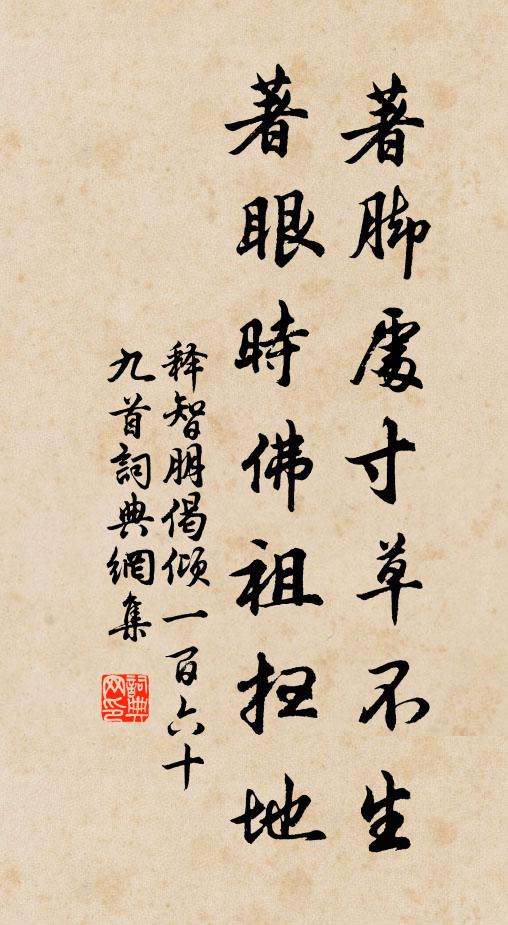 著脚處寸草不生
著眼時佛祖扫地
释智朋偈倾一百六十
九首詞典網集
詞典
网印